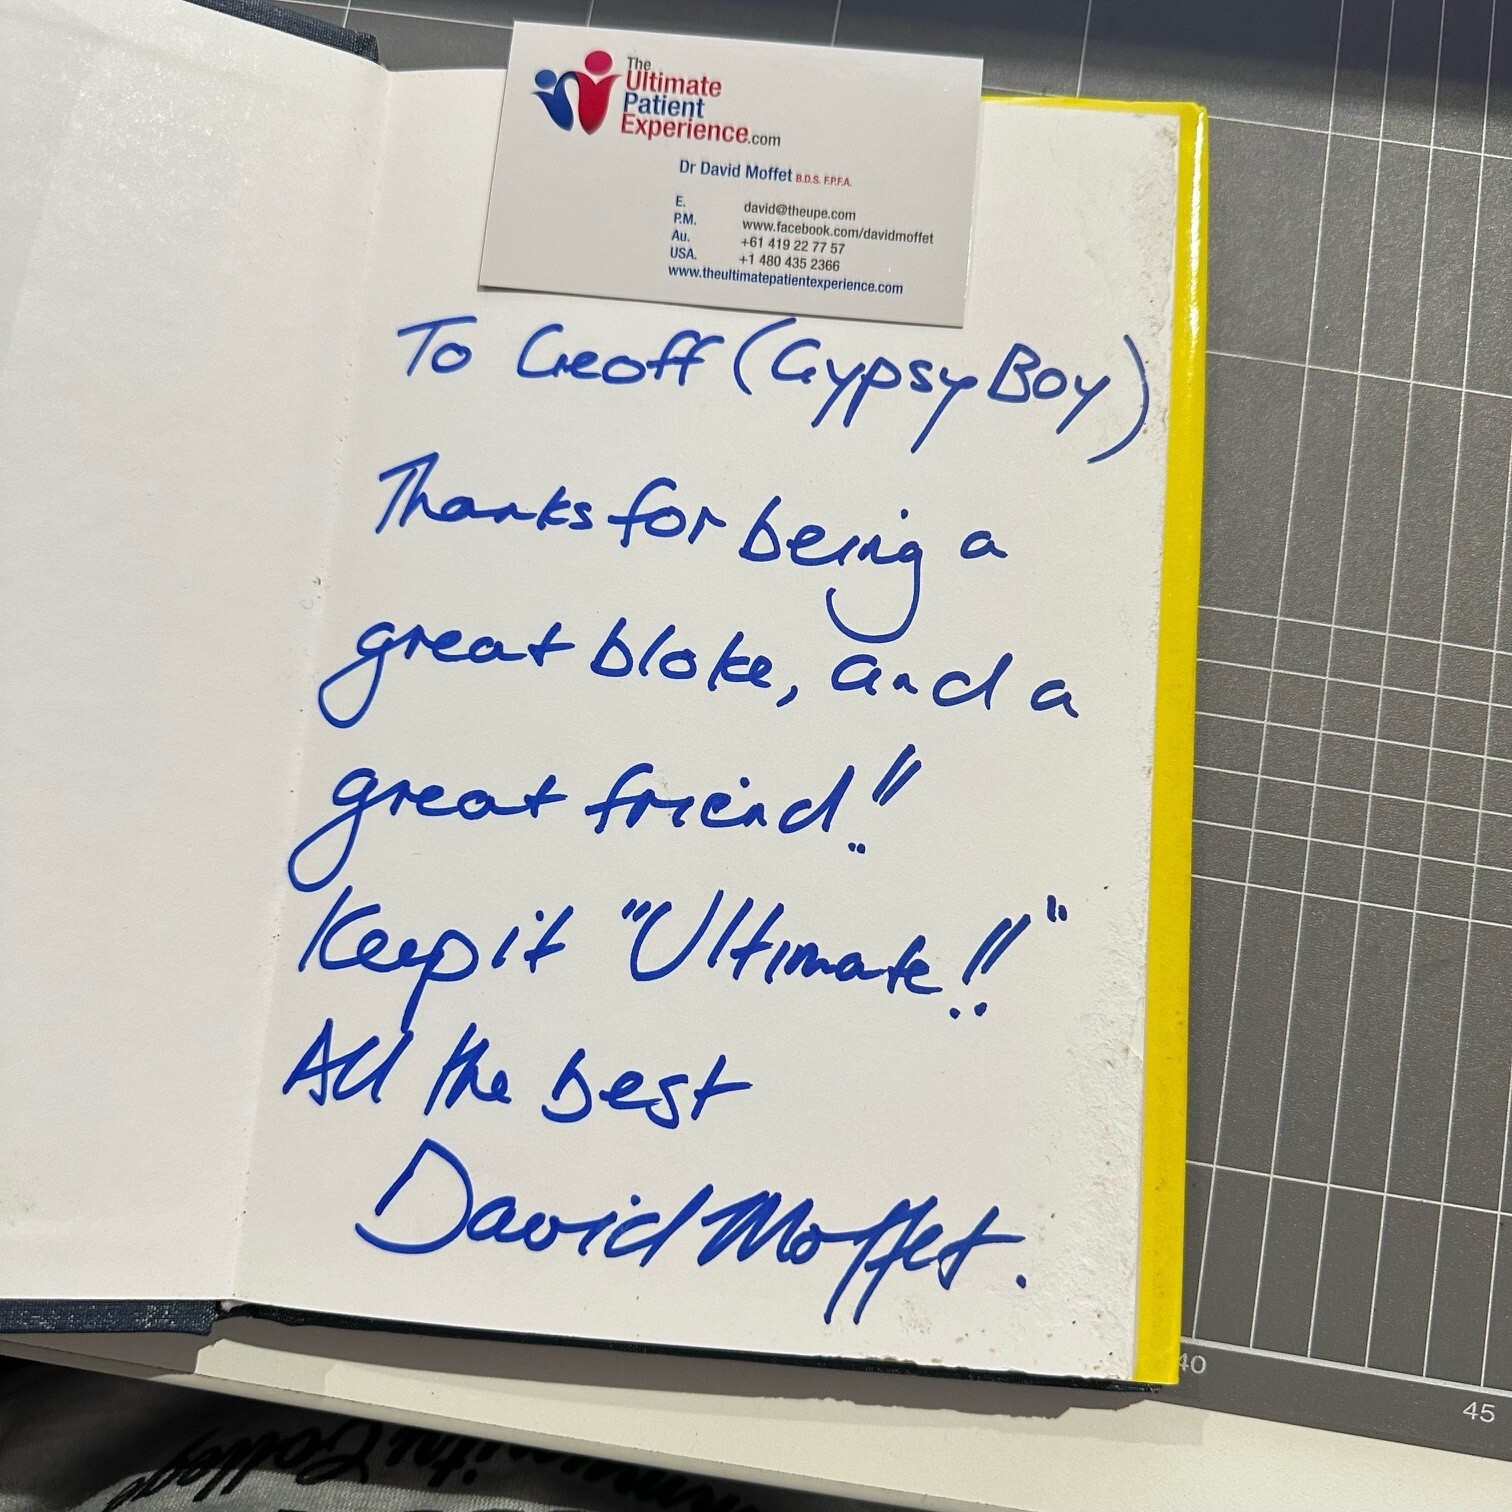 The
Ultimate
Patient
Experience.com
Dr David Moffet B.D.S. F.P.F.A.
E. david@theupe.com
P.M. www.facebook.com/davidmoffet
Au. +61 419 22 77 57
USA. +1 480 435 2366
www.theultimatepatientexperience.com
To Geoff (Gypsy Boy)
Thanks for being a
great bloke, and a
great friend!!
Keep it "Ultimate!!"
All the best
David Moffet.
40
45